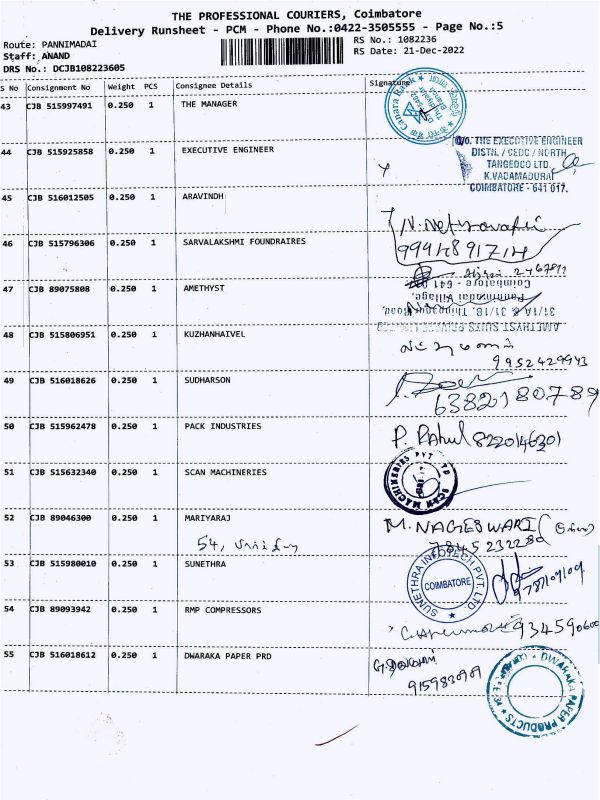 THE PROFESSIONAL COURIERS, Coimbatore
Delivery Runsheet - PCM - Phone No.:0422-3505555 - Page No.:5
Route: PANNIMADAI
RS No.: 1082236
Staff: ANAND
RS Date: 21-Dec-2022
DRS No.: DCJB108223605
S No Consignment No Weight PCS Consignee Details Signature
43 CJB 515997491 0.250 1 THE MANAGER
Canara Bank
44 CJB 515925858 0.250 1 EXECUTIVE ENGINEER
O/o. THE EXECUTIVE ENGINEER
DISTN. / CEDC / NORTH
TANGEDCO LTD.
K.VADAMADURAI
COIMBATORE - 641 017.
45 CJB 516012505 0.250 1 ARAVINDH
46 CJB 515796306 0.250 1 SARVALAKSHMI FOUNDRAIRES
47 CJB 89075808 0.250 1 AMETHYST
AMETHYST SUITS PRIVATE LIMITED
31/1A & 31/1B, Thippanur Road,
Pannimadai Village,
Coimbatore - 641 017
48 CJB 515806951 0.250 1 KUZHANHAIVEL
9952429943
49 CJB 516018626 0.250 1 SUDHARSON
6382180789
50 CJB 515962478 0.250 1 PACK INDUSTRIES
P. Rahul 8220146301
51 CJB 515632340 0.250 1 SCAN MACHINERIES
SCAN MACHINERIES PVT LTD
52 CJB 89046300 0.250 1 MARIYARAJ
M. NAGESWARI
54,
7845232280
53 CJB 515980010 0.250 1 SUNETHRA
SUNETHRA INFOTECH PVT. LTD.
COIMBATORE
54 CJB 89093942 0.250 1 RMP COMPRESSORS
934590600
55 CJB 516018612 0.250 1 DWARAKA PAPER PRD
9159830909
DWARAKA PAPER PRODUCTS